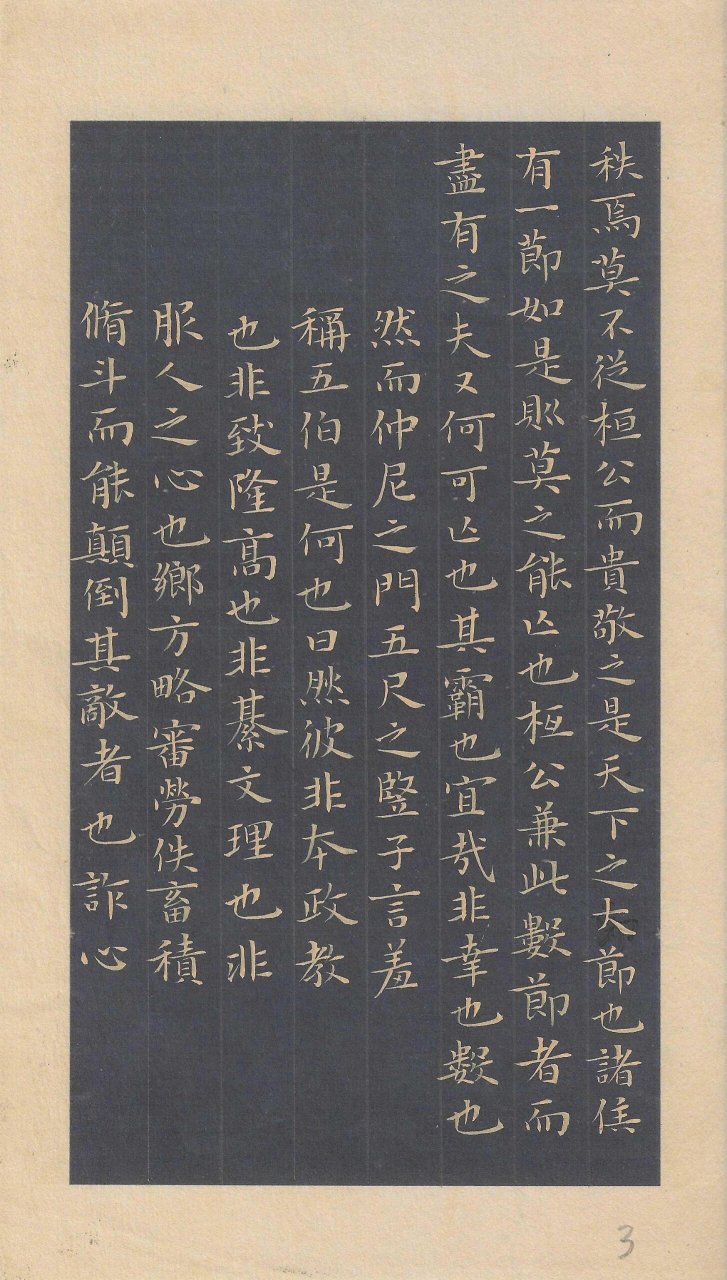 秩焉莫不從桓公而貴敬之是天下之大節也諸侯
有一節如是則莫之能亡也桓公兼此數節者而
盡有之夫又何可亡也其霸也宜哉非幸也數也
然而仲尼之門五尺之豎子言羞
稱五伯是何也曰然彼非本政教
也非致隆高也非綦文理也非
服人之心也鄉方略審勞佚畜積
脩斗而能顛倒其敵者也詐心
3